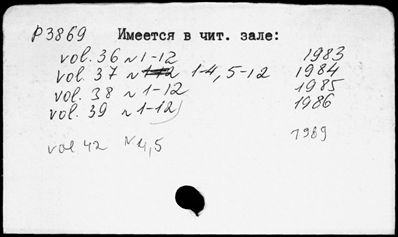 P3869 Имеется в чит. зале:
vol. 36 N 1-12 1983
vol. 37 N 1-4, 5-12 1984
vol. 38 N 1-12 1985
vol. 39 N 1-12 1986
vol 42 N 4,5 1989